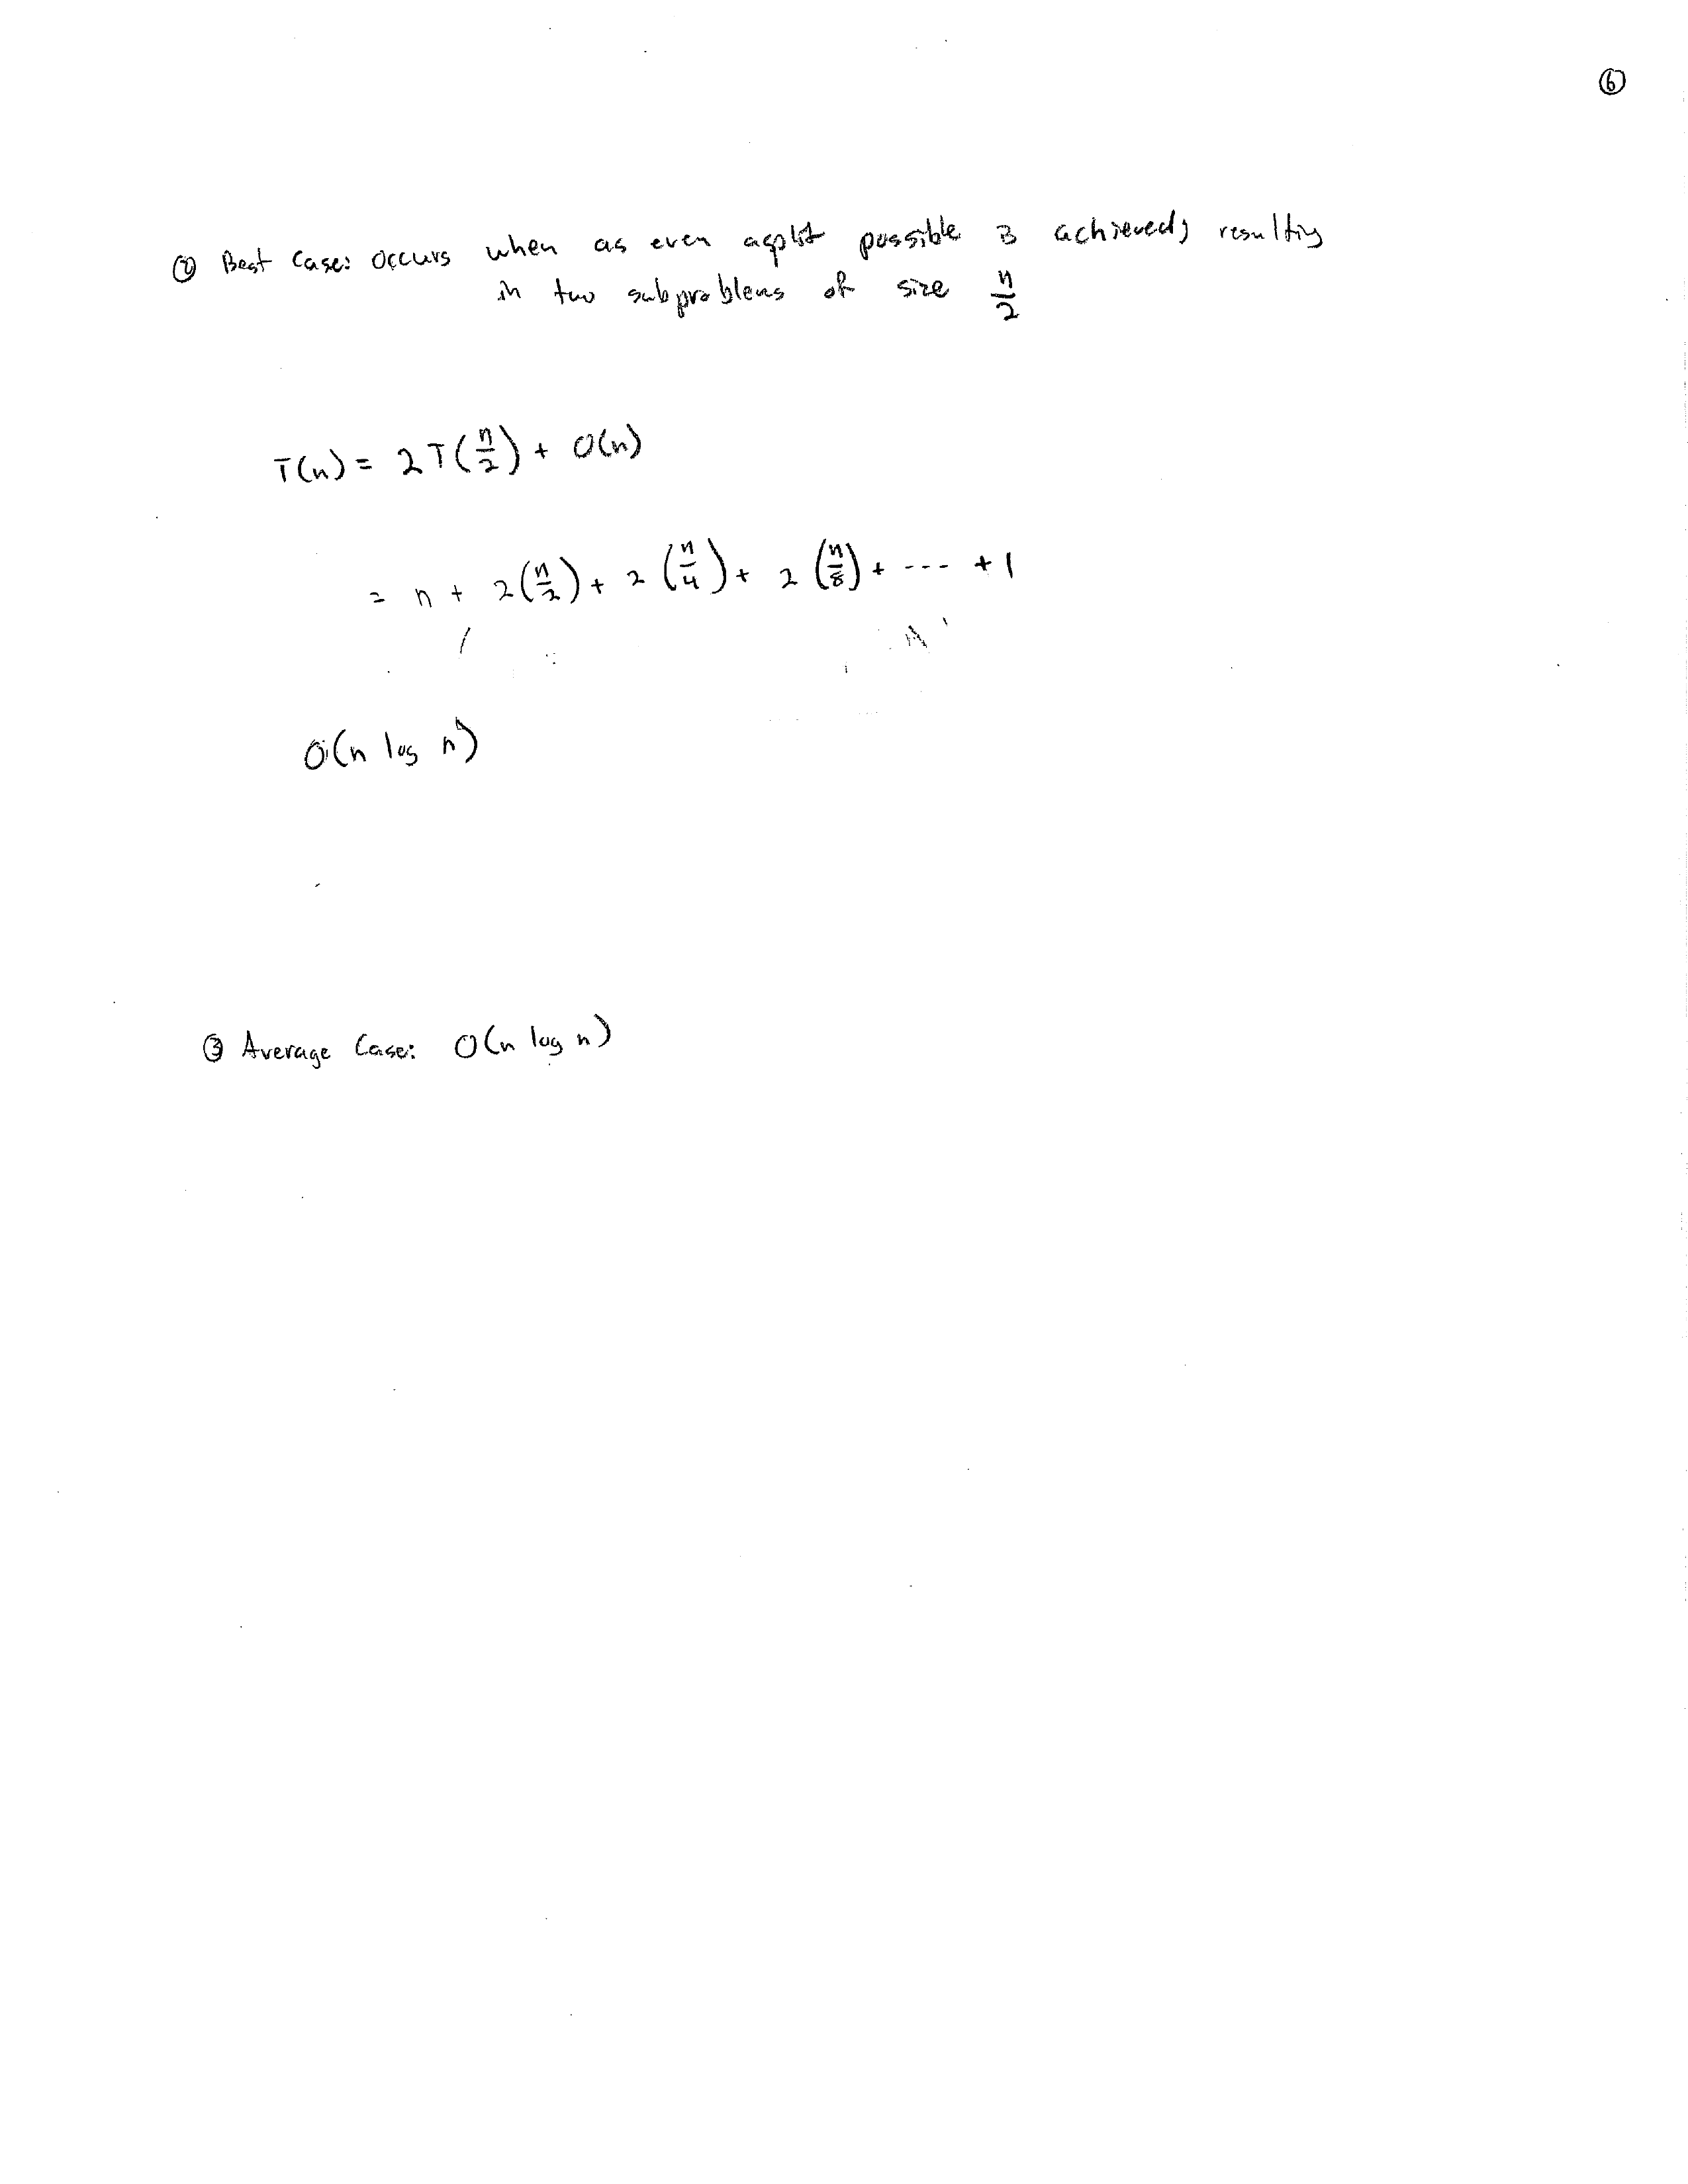 ⑥
② Best Case: Occurs when as even a split possible is achieved, resulting
in two subproblems of size n/2
T(n) = 2T(n/2) + O(n)
= n + 2(n/2) + 2(n/4) + 2(n/8) + --- + 1
O(n log n)
③ Average Case: O(n log n)